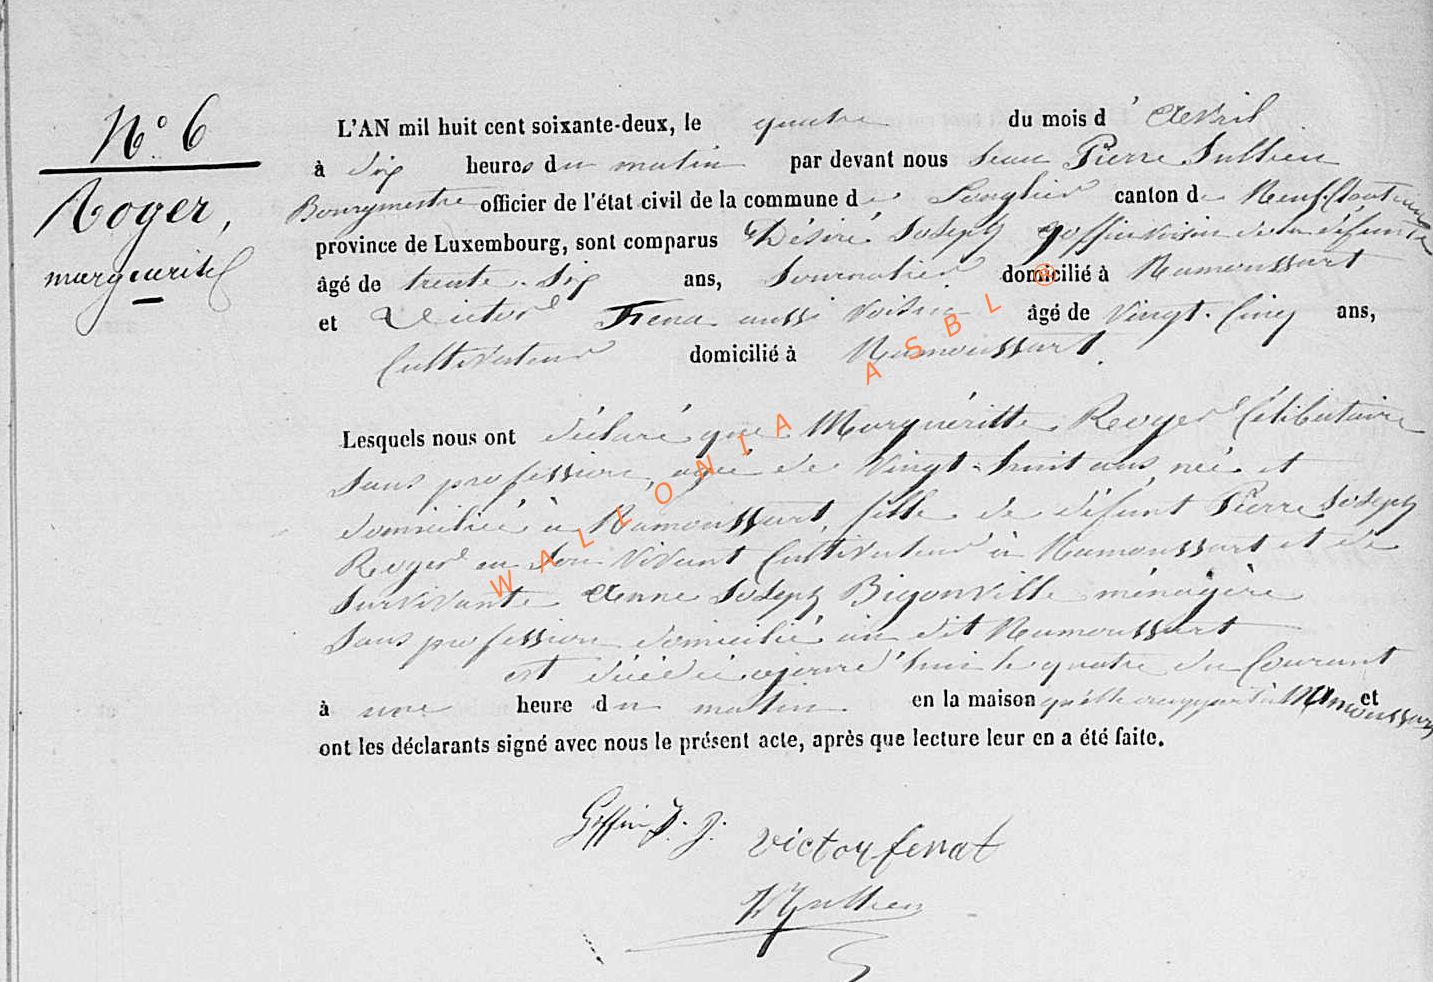 N° 6
Roger,
marguerite
L'AN mil huit cent soixante-deux, le quatre du mois d'Avril
à dix heures du matin par devant nous Jean Pierre Jullien
Bourgmestre officier de l'état civil de la commune de Longlier canton de Neufchateau
province de Luxembourg, sont comparus Désiré Joseph goffin voisin de la défunte
âgé de trente-six ans, Journalier domicilié à Namoussart
et Victor Fena aussi voisin âgé de Vingt-Cinq ans,
Cultivateur domicilié à Namoussart.
Lesquels nous ont déclaré que Marguéritte Roger Célibataire
sans profession, agée de Vingt-huit ans née et
domiciliée à Namoussart, fille de défunt Pierre Joseph
Roger en son vivant Cultivateur à Namoussart et de
Survivante Anne Joseph Bigonville ménagère
sans profession domicilié au dit Namoussart
est décédée aujourd'hui le quatre du Courant
à une heure du matin en la maison qu'elle occuppait à Namoussart et
ont les déclarants signé avec nous le présent acte, après que lecture leur en a été faite.
Goffin D. J. victor fenat
Jullien
WALLONIA ASBL ®